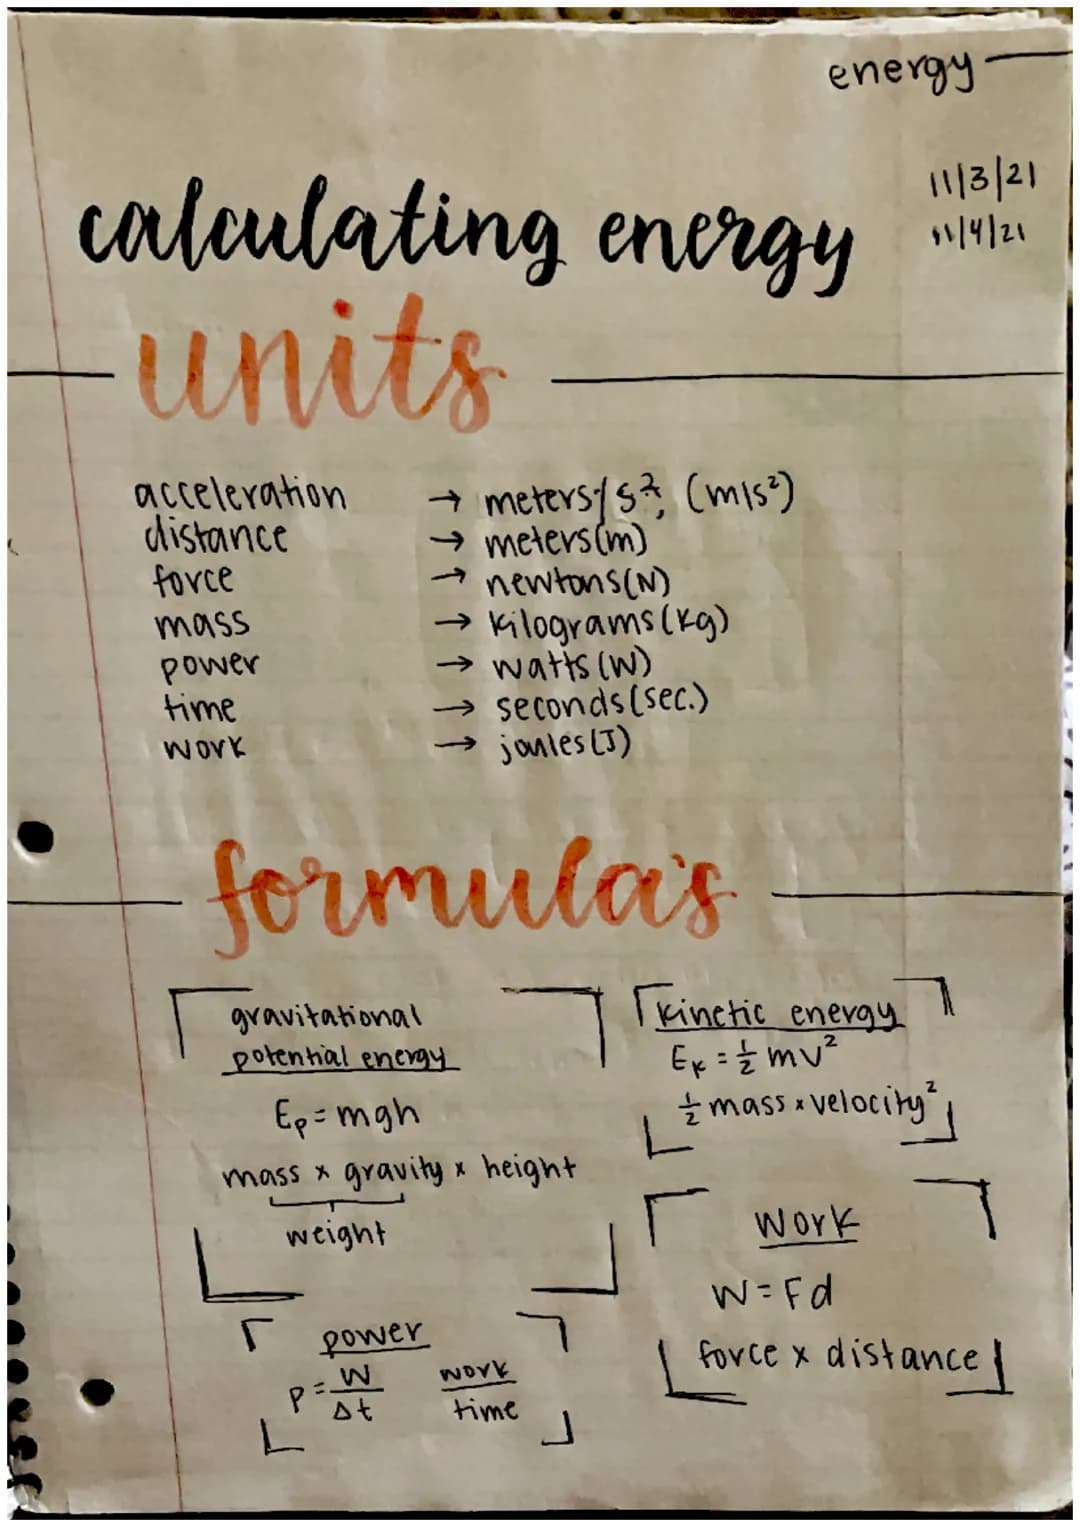 energy
11/3/21
11/4/21
calculating energy
units
acceleration → meters/s², (m/s²)
distance → meters(m)
force → newtons(N)
mass → kilograms(kg)
power → watts(W)
time → seconds(sec.)
work → joules(J)
formula's
gravitational
potential energy
Ep = mgh
mass x gravity x height
weight
kinetic energy
Eк = ½ mv²
½ mass x velocity²
work
W = Fd
force x distance
power
P = W/Δt work/time